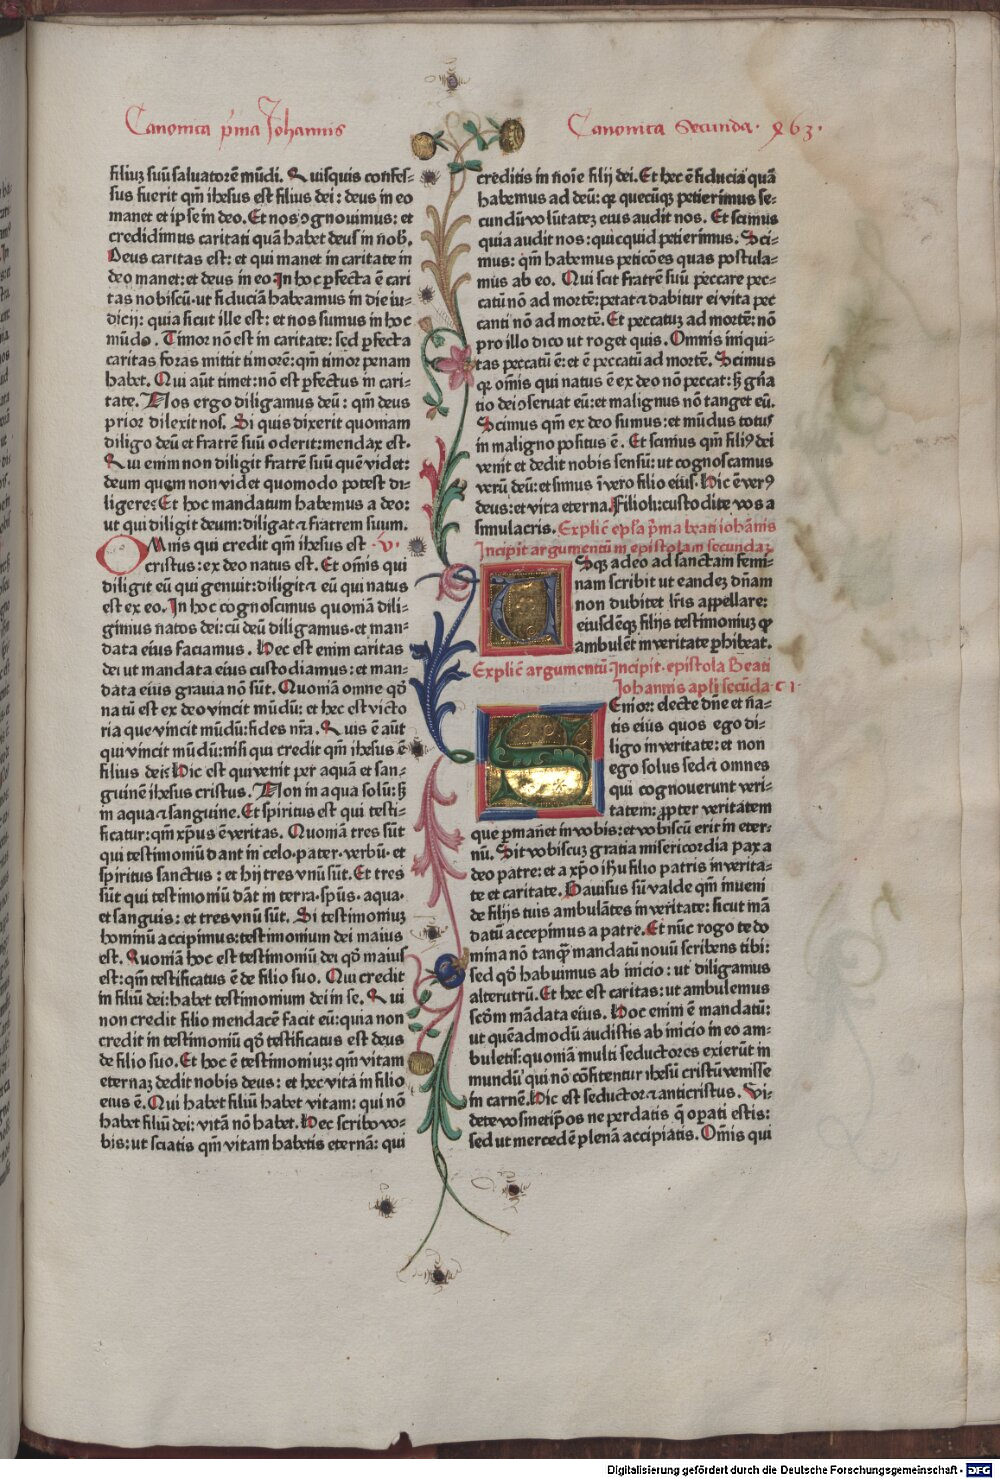 Canonica p̄ma Johannis
Canonica Secunda· 963·
filiuȝ suū saluatorē mūdi. Quisquis confes-
sus fuerit qm̄ ihesus est filius dei : deus in eo
manet et ipse in deo. Et nos ꝯgnouimus: et
credidimus caritati quā habet deus in nob̄.
Deus caritas est: et qui manet in caritate in
deo manet: et deus in eo. In hoc ꝑfecta ē cari
tas nobiscū· ut fiduciā habeamus in die iu-
dicij: quia sicut ille est: et nos sumus in hoc
mūdo. Timor nō est in caritate: sed ꝑfecta
caritas foras mittit timorē: qm̄ timor penam
habet. Qui aūt timet: nō est ꝑfectus in cari-
tate. Nos ergo diligamus deū: qm̄ deus
prior dilexit nos. Si quis dixerit quoniam
diligo deū et fratrē suū oderit: mendax est.
Qui enim non diligit fratrē suū quē videt:
deum quem non videt quomodo potest di-
ligere? Et hoc mandatum habemus a deo:
ut qui diligit deum: diligat ⁊ fratrem suum.
OMnis qui credit qm̄ ihesus est ·v·
cristus: ex deo natus est. Et om̄is qui
diligit eū qui genuit: diligit ⁊ eū qui natus
est ex eo. In hoc cognoscimus quoniā dili-
gimus natos dei: cū deū diligamus· et man-
data eius faciamus. Hec est enim caritas
dei ut mandata eius custodiamus: et man-
data eius grauia nō sūt. Quoniā omne qd̄
natū est ex deo vincit mūdū: et hec est victo
ria que vincit mūdū: fides nr̄a. Quis ē aūt
qui vincit mūdū: nisi qui credit qm̄ ihesus ē
filius dei? Hic est qui venit per aquā et san-
guinē ihesus cristus. Non in aqua solū: sꝫ
in aqua ⁊ sanguine. Et spiritus est qui testi-
ficatur: qm̄ xp̄us ē veritas. Quoniā tres sūt
qui testimoniū dant in celo· pater· verbū· et
spiritus sanctus : et hij tres vnū sūt. Et tres
sūt qui testimoniū dāt in terra· spūs· aqua·
et sanguis: et tres vnū sūt. Si testimoniuȝ
hominū accipimus: testimonium dei maius
est. Quoniā hoc est testimoniū dei qd̄ maius
est: qm̄ testificatus ē de filio suo. Qui credit
in filiū dei: habet testimonium dei in se. Qui
non credit filio mendacē facit eū: quia non
credit in testimoniū qd̄ testificatus est deus
de filio suo. Et hoc ē testimoniuȝ: qm̄ vitam
eternaȝ dedit nobis deus: et hec vita in filio
eius ē. Qui habet filiū habet vitam: qui nō
habet filiū dei: vitā nō habet. Hec scribo vo-
bis: ut sciatis qm̄ vitam habetis eternā: qui
creditis in nōie filij dei. Et hec ē fiducia quā
habemus ad deū: qꝫ quecūqꝫ petierimus se-
cundū volūtateȝ eius audit nos. Et scimus
quia audit nos: quicquid petierimus. Sci-
mus: qm̄ habemus peticōes quas postula-
mus ab eo. Qui scit fratrē suū peccare pec-
catū nō ad mortē: petat ⁊ dabitur ei vita pec
canti nō ad mortē. Et peccatuȝ ad mortē: nō
pro illo dico ut roget quis. Omnis iniqui-
tas peccatū ē: et ē peccatū ad mortē. Scimus
qꝫ om̄is qui natus ē ex deo nō peccat: sꝫ gn̄a
tio dei ꝯseruat eū: et malignus nō tanget eū.
Scimus qm̄ ex deo sumus: et mūdus totus
in maligno positus ē. Et scimus qm̄ filiꝰ dei
venit et dedit nobis sensū: ut cognoscamus
verū deū: et simus ī vero filio eius. Hic ē verꝰ
deus: et vita eterna. Filioli: custodite vos a
simulacris. Explic̄ ep̄la p̄ma beati iohānis
Incipit argumentū in epistolam secundaȝ
USqȝ adeo ad sanctam femi-
nam scribit ut eandeȝ dn̄am
non dubitet lr̄is appellare:
eiusdēqꝫ filijs testimoniuȝ qꝫ
ambulēt in veritate ꝑhibeat.
Explic̄ argumentū· Incipit· epistola Beati
Johannis apl̄i secūda· C I·
SEnior: electe dn̄e et na-
tis eius quos ego di-
ligo in veritate: et non
ego solus sed ⁊ omnes
qui cognouerunt veri-
tatem: ꝓpter veritatem
que ꝑmanet in vobis: et vobiscū erit in eter-
nū. Sit vobiscuȝ gratia misericordia pax a
deo patre: et a xp̄o ih̄u filio patris in verita-
te et caritate. Gauisus sū valde qm̄ inueni
de filijs tuis ambulātes in veritate: sicut mā
datū accepimus a patre. Et nūc rogo te do
mina nō tanqꝫ mandatū nouū scribens tibi:
sed qd̄ habuimus ab inicio : ut diligamus
alterutrū. Et hec est caritas: ut ambulemus
scd̄m mādata eius. Hoc enim ē mandatū:
ut quēadmodū audistis ab inicio in eo am-
buletis: quoniā multi seductores exierūt in
mundū qui nō cōfitentur ihesū cristū venisse
in carnē. Hic est seductor ⁊ anticristus. Vi-
dete vosmetip̄os ne perdatis q̄ opati estis:
sed ut mercedē plenā accipiatis. Om̄is qui
Digitalisierung gefördert durch die Deutsche Forschungsgemeinschaft - DFG